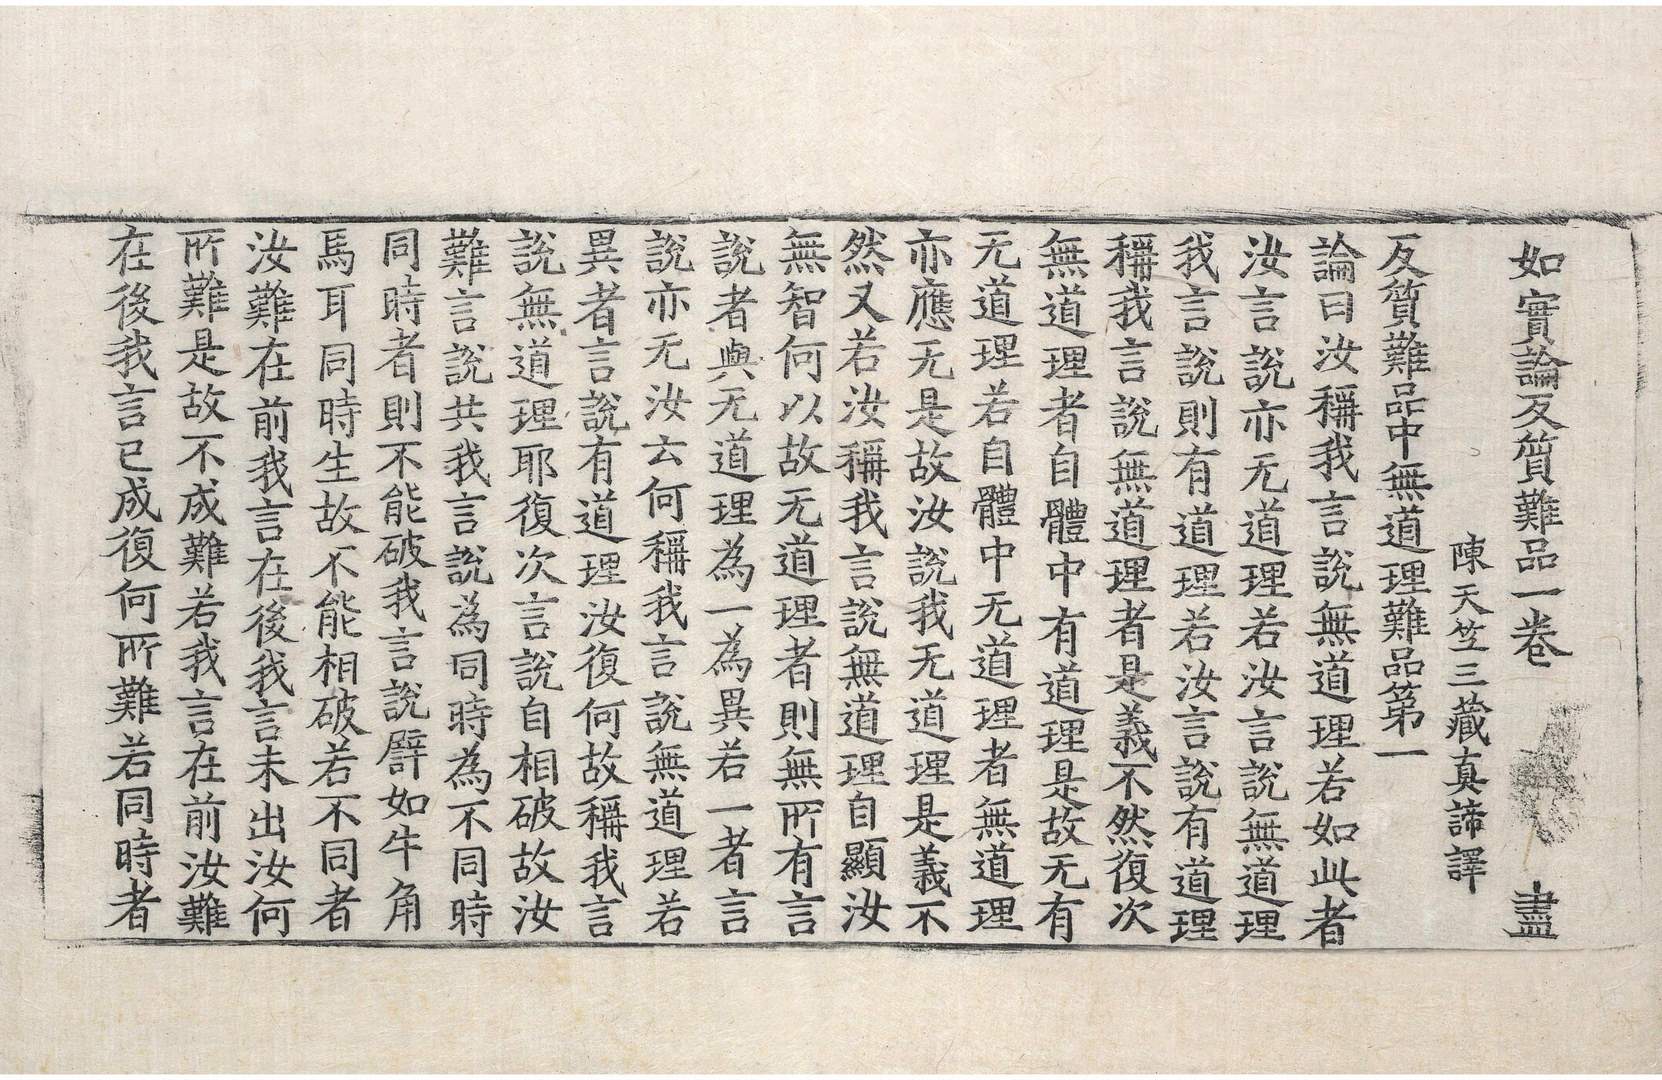 如實論反質難品一卷 盡
陳天竺三藏真諦譯
反質難品中無道理難品第一
論曰汝稱我言說無道理若如此者
汝言說亦无道理若汝言說無道理
我言說則有道理若汝言說有道理
稱我言說無道理者是義不然復次
無道理者自體中有道理是故无有
无道理若自體中无道理者無道理
亦應无是故汝說我无道理是義不
然又若汝稱我言說無道理自顯汝
無智何以故无道理者則無所有言
說者與无道理為一為異若一者言
說亦无汝云何稱我言說無道理若
異者言說有道理汝復何故稱我言
說無道理耶復次言說自相破故汝
難言說共我言說為同時為不同時
同時者則不能破我言說譬如牛角
馬耳同時生故不能相破若不同者
汝難在前我言在後我言未出汝何
所難是故不成難若我言在前汝難
在後我言已成復何所難若同時者